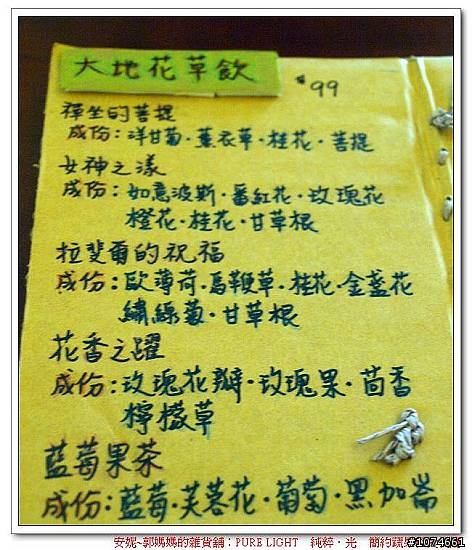 大地花草飲
$99
禪坐的菩提
成份：洋甘菊·薰衣草·桂花·菩提
女神之漾
成份：如意波斯·番紅花·玫瑰花
橙花·桂花·甘草根
拉斐爾的祝福
成份：歐薄荷·馬鞭草·桂花·金盞花
繡線菊·甘草根
花香之躍
成份：玫瑰花瓣·玫瑰果·茴香
檸檬草
藍莓果茶
成份：藍莓·芙蓉花·葡萄·黑加崙
安妮~郭媽媽的雜貨舖：PURE LIGHT 純粹·光 簡約蔬
#1074661